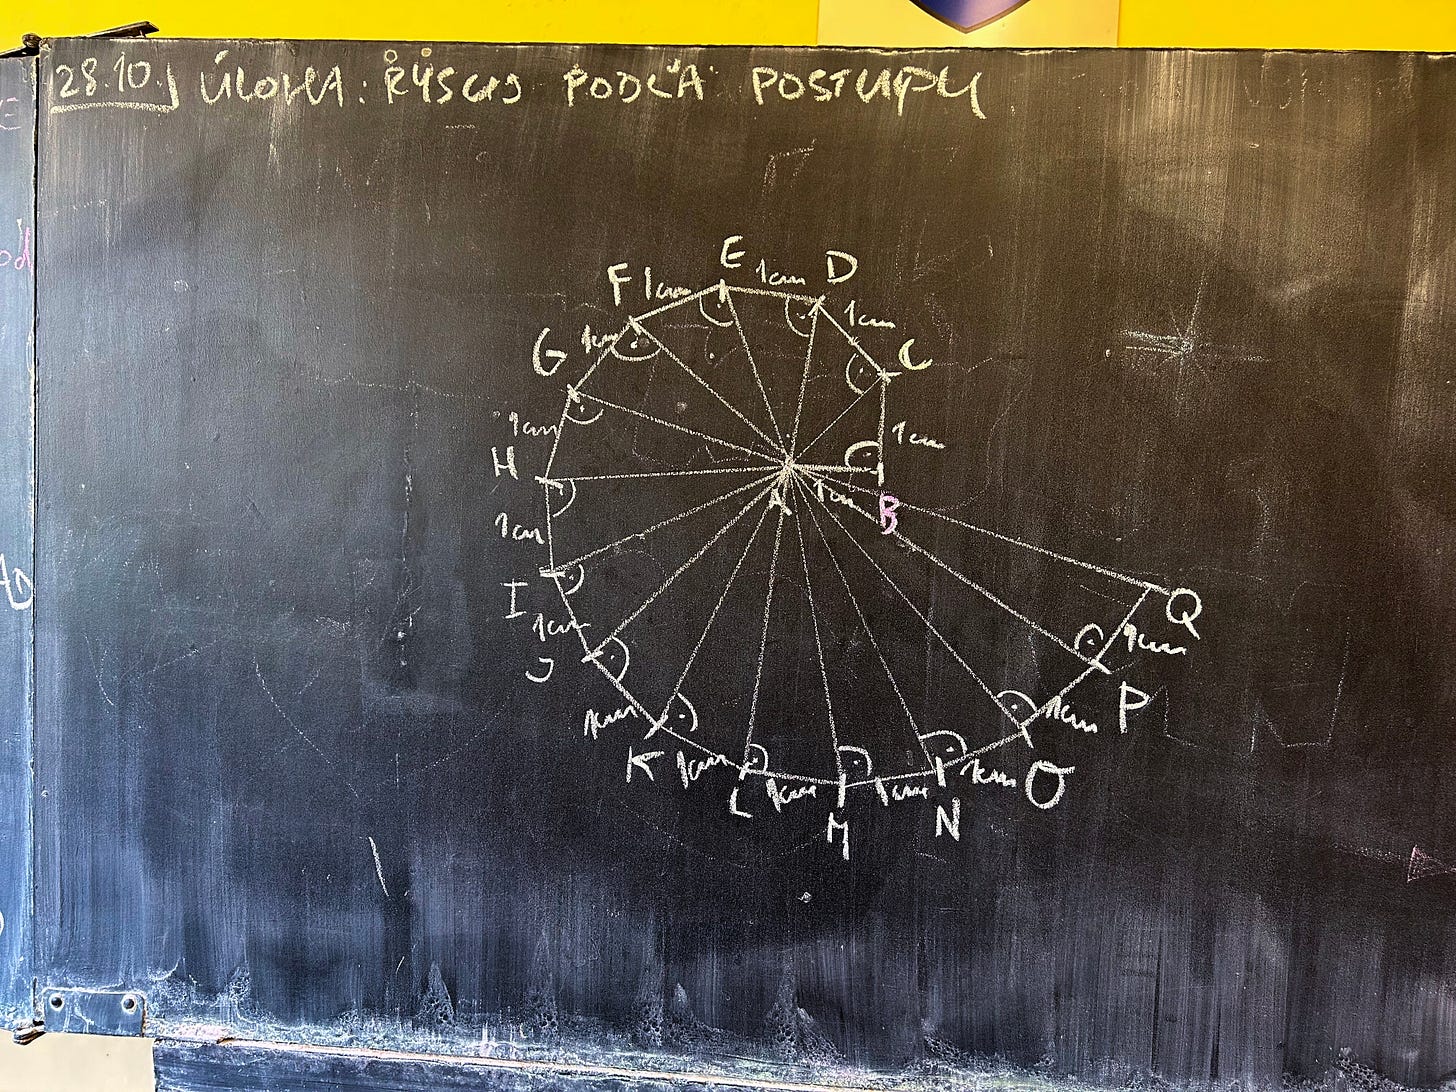 28.10.) ÚLOHA: RÝSUJ PODĽA POSTUPU
E 1cm D
F 1cm
1cm
G 1cm C
1cm
1cm
H
A 1cm B
1cm
I
1cm
Q
1cm
J
1cm P
1cm
K 1cm
1cm O
L 1cm
1cm
M
N